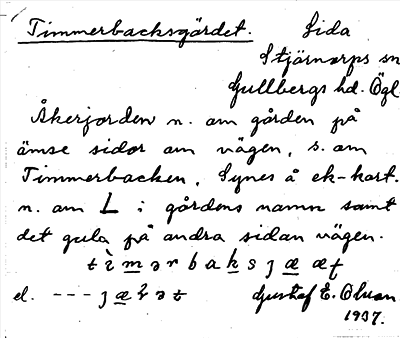 Timmerbacksgärdet. Lida
Stjärnorps sn
Gullbergs hd. Ögl.
Åkerjorden n. om gården på
ömse sidor om vägen, s. om
Timmerbacken. Synes å ek-kart.
n. om L i gårdens namn samt
det gula på andra sidan vägen.
el. ---
Gustaf E. Olsson
1937.